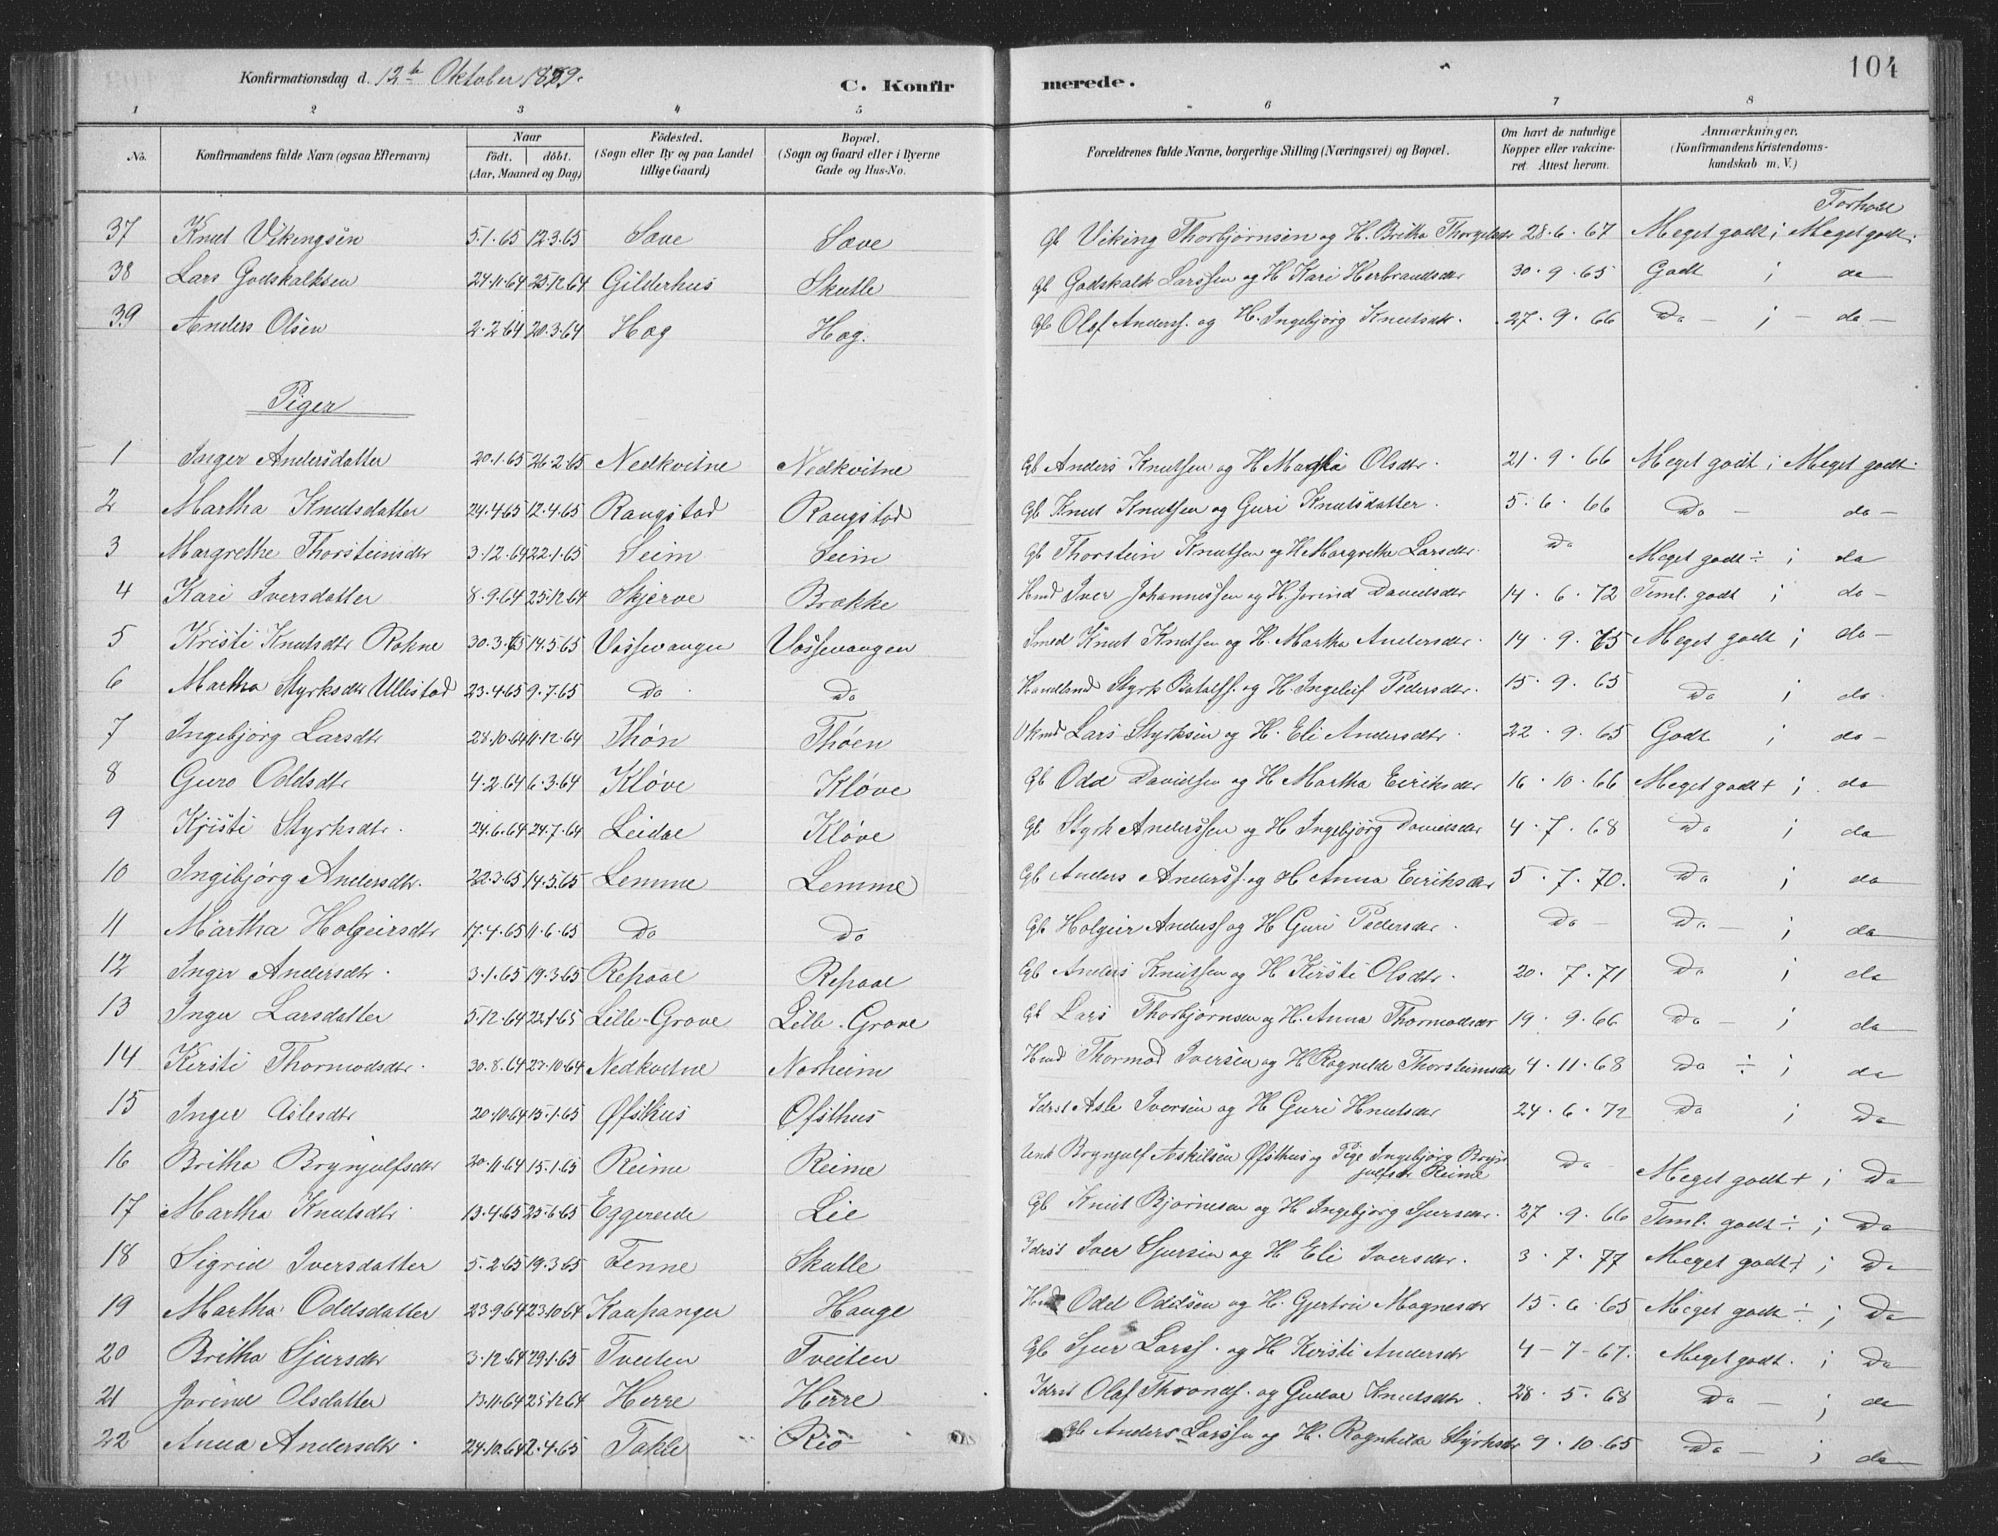 Konfirmationsdag d. 12te Oktober 1879. C. Konfirmerede. 104
1 2 3 4 5 6 7 8
No. Konfirmandens fulde Navn (ogsaa Efternavn) Naar født. døbt. (Aar, Maaned og Dag) Fødested. (Sogn eller By og paa Landet tillige Gaard) Bopæl. (Sogn og Gaard eller i Byerne Gade og Hus-No. Forældrenes fulde Navne, borgerlige Stilling (Næringsvei) og Bopæl. Om havt de naturlige Kopper eller vakcineret. Attest herom. Anmærkninger. (Konfirmandens Kristendomskundskab m. V.)
Forhold
37 Knut Vikingsen 5.1.65 12.3.65 Sæve Sæve Gb Viking Thorbjørnsen og H. Britha Thorgilsdr 28.6.67 Meget godt; Meget godt.
38 Lars Godskalksen 24.11.64 25.12.64 Gilderhus Skutle Gb Godskalk Larssen og H Kari Herbrandsdr 30.9.65 Godt ; do
39 Anders Olsen 2.2.64 20.3.64 Hæg Hæg. Gb Olaf Anderss. og H. Ingebjörg Knutsdr. 27.9.66 Do - ; - do -
Piger
1 Inger Andersdatter 20.1.65 26.2.65 Nedkvitne Nedkvitne Gb Anders Knutsen og H Olsdtr. 21.9.66 Meget godt; Meget godt.
2 Martha Knutsdatter 24.4.65 12.4.65 Rangstad Rangstad Gb Knut Knutsen og Guri Knutsdatter. 5.6.66 Do - do -
3 Margrethe Thorsteinsdtr 3.12.64 22.1.65 Seim Seim Gb Thorstein Knutsen og H. Margretha Larsdtr. Do Meget godt ÷ ; do
4 Kari Iversdatter 8.9.64 25.12.64 Skjerve Brække Hmd Iver Johannessen og H. Jorind Davidsdtr 14.6.72 Teml. godt ; do -
5 Kristi Knutsdtr Rokne 30.3.65 14.5.65 Vossevangen Vossevangen Smed Knut Knutsen og H. Martha Andersdtr. 14.9.65 Meget godt ; do -
6 Martha Styrksdtr Ullestad 23.4.65 9.7.65 Do Do Handlend Styrk Batalfs. og H. Ingeleif Pedersdtr. 15.9.65 Do ; do.
7 Ingebjörg Larsdtr 28.10.64 11.12.64 Thøn Thøen Lars Styrksen og H. Eli Andersdtr. 22.9.65 Godt ; do -
8 Guro Oddsdtr 4.2.64 6.3.64 Kløve Kløve Gb Odd Davidsen og H Martha Eiriksdtr 16.10.66 Meget godt + ; do
9 Kristi Styrksdtr. 24.6.64 24.7.64 Leidal Kløve Gb Styrk Anderssen og H Ingebjörg Davidsdtr 4.7.68 Do ; do
10 Ingibjørg Andersdtr. 22.3.65 14.5.65 Lemme Lemme Gb Anders Anderss. og H Anna Eiriksdtr 5.7.70. Do ; do
11 Martha Holgeirsdtr 17.4.65 11.6.65 Do Do Gb Holgeir Anderss og H Guri Pedersdtr. Do - Do - ; do
12 Inger Andersdtr. 3.1.65 19.3.65 Repaal Repaal Gb Anders Knutsen og H Kirsti Olsdtr. 20.7.71 Do ; do
13 Inger Larsdatter 5.12.64 22.1.65 Lille-Grove Lille-Grove Gb Lars Thorbjørnsen og H. Anna Thormodsdtr 19.9.66 Do - ; do
14 Kirsti Thormodsdtr. 30.8.64 23.10.64 Nedkvitne Norheim Hmd Thormod Iversen og H Ragnilde Thorsteinsdtr 4.11.68 Do ÷ ; do
15 Inger Aslesdtr 20.10.64 15.1.65 Øfsthus Ofsthus Idrst Asle Iversen og H Guri Knutsdtr 24.6.72 Do ; Do
16 Britha Brynjulfsdtr 20.11.64 15.1.65 Reime Reime Brynjulf Askilsen Øfsthus og Pige Ingebjörg Brynjulfsdr Reime Do - Meget godt + ; Do
17 Martha Knutsdtr. 13.4.65 25.6.65 Eggereide Lie Gb Knut Bjørnesen og H Ingebjörg Sjursdtr. 27.9.66 Teml. godt ÷ ; Do
18 Sigrid Iversdatter 5.2.65 19.3.65 Fenne Skutle Idrst Iver Sjursen og H Eli Iversdtr. 3.7.77 Meget godt + ; Do
19 Martha Oddsdatter 23.9.64 23.10.64 Kaupanger Hauge Hmd Odd Oddsen og H. Gjertru Magnesdtr 15.6.65 Meget godt ÷ ; Do
20 Britha Sjursdtr 3.12.64 29.1.65 Tveiten Tveiten Gb Sjur Larss. og H Kirsti Andersdr 4-7-67. Meget godt. ; Do
21 Jorind Olsdatter 13.11.64 25.12.64 Herre Herre Idrst Olaf Throndss. og Gudve Knutsdtr 28.5.68 Do - ; do
22 Anna Andersdtr. 24.10.64 2.4.65 Takle Rio Gb Anders Larssen og H. Ragnhilda Styrksdtr 9.10.65 Do - ; do